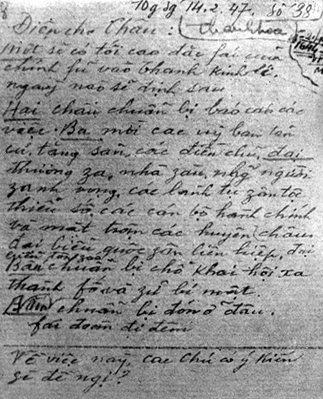 10g sg 14.2.47. số 38
Điện cho Thâu: Thanh hóa
Một sẽ có tối cao đặc fái viên
chính fủ vào thanh kinh lí.
ngày nào sẽ định sau
Hai cháu chuẩn bị báo cáo các
việc. Ba mời các uỷ ban tản
cư, tăng sản, các điền chủ, đại
thương za, nhà zàu, nhg người
zanh vọng, các lãnh tụ zân tộc
thiểu số, các cán bộ hành chính
và mặt trận các huyện châu
đại biểu quốc zân liên hiệp, đại
biểu tôn záo
Bốn chuẩn bị chỗ khai hội xa
thành fố và zữ bí mật.
Năm chuẩn bị đón ở đâu.
fái đoàn đi đêm
Về việc này, các chú có ý kiến
gì đề nghị?